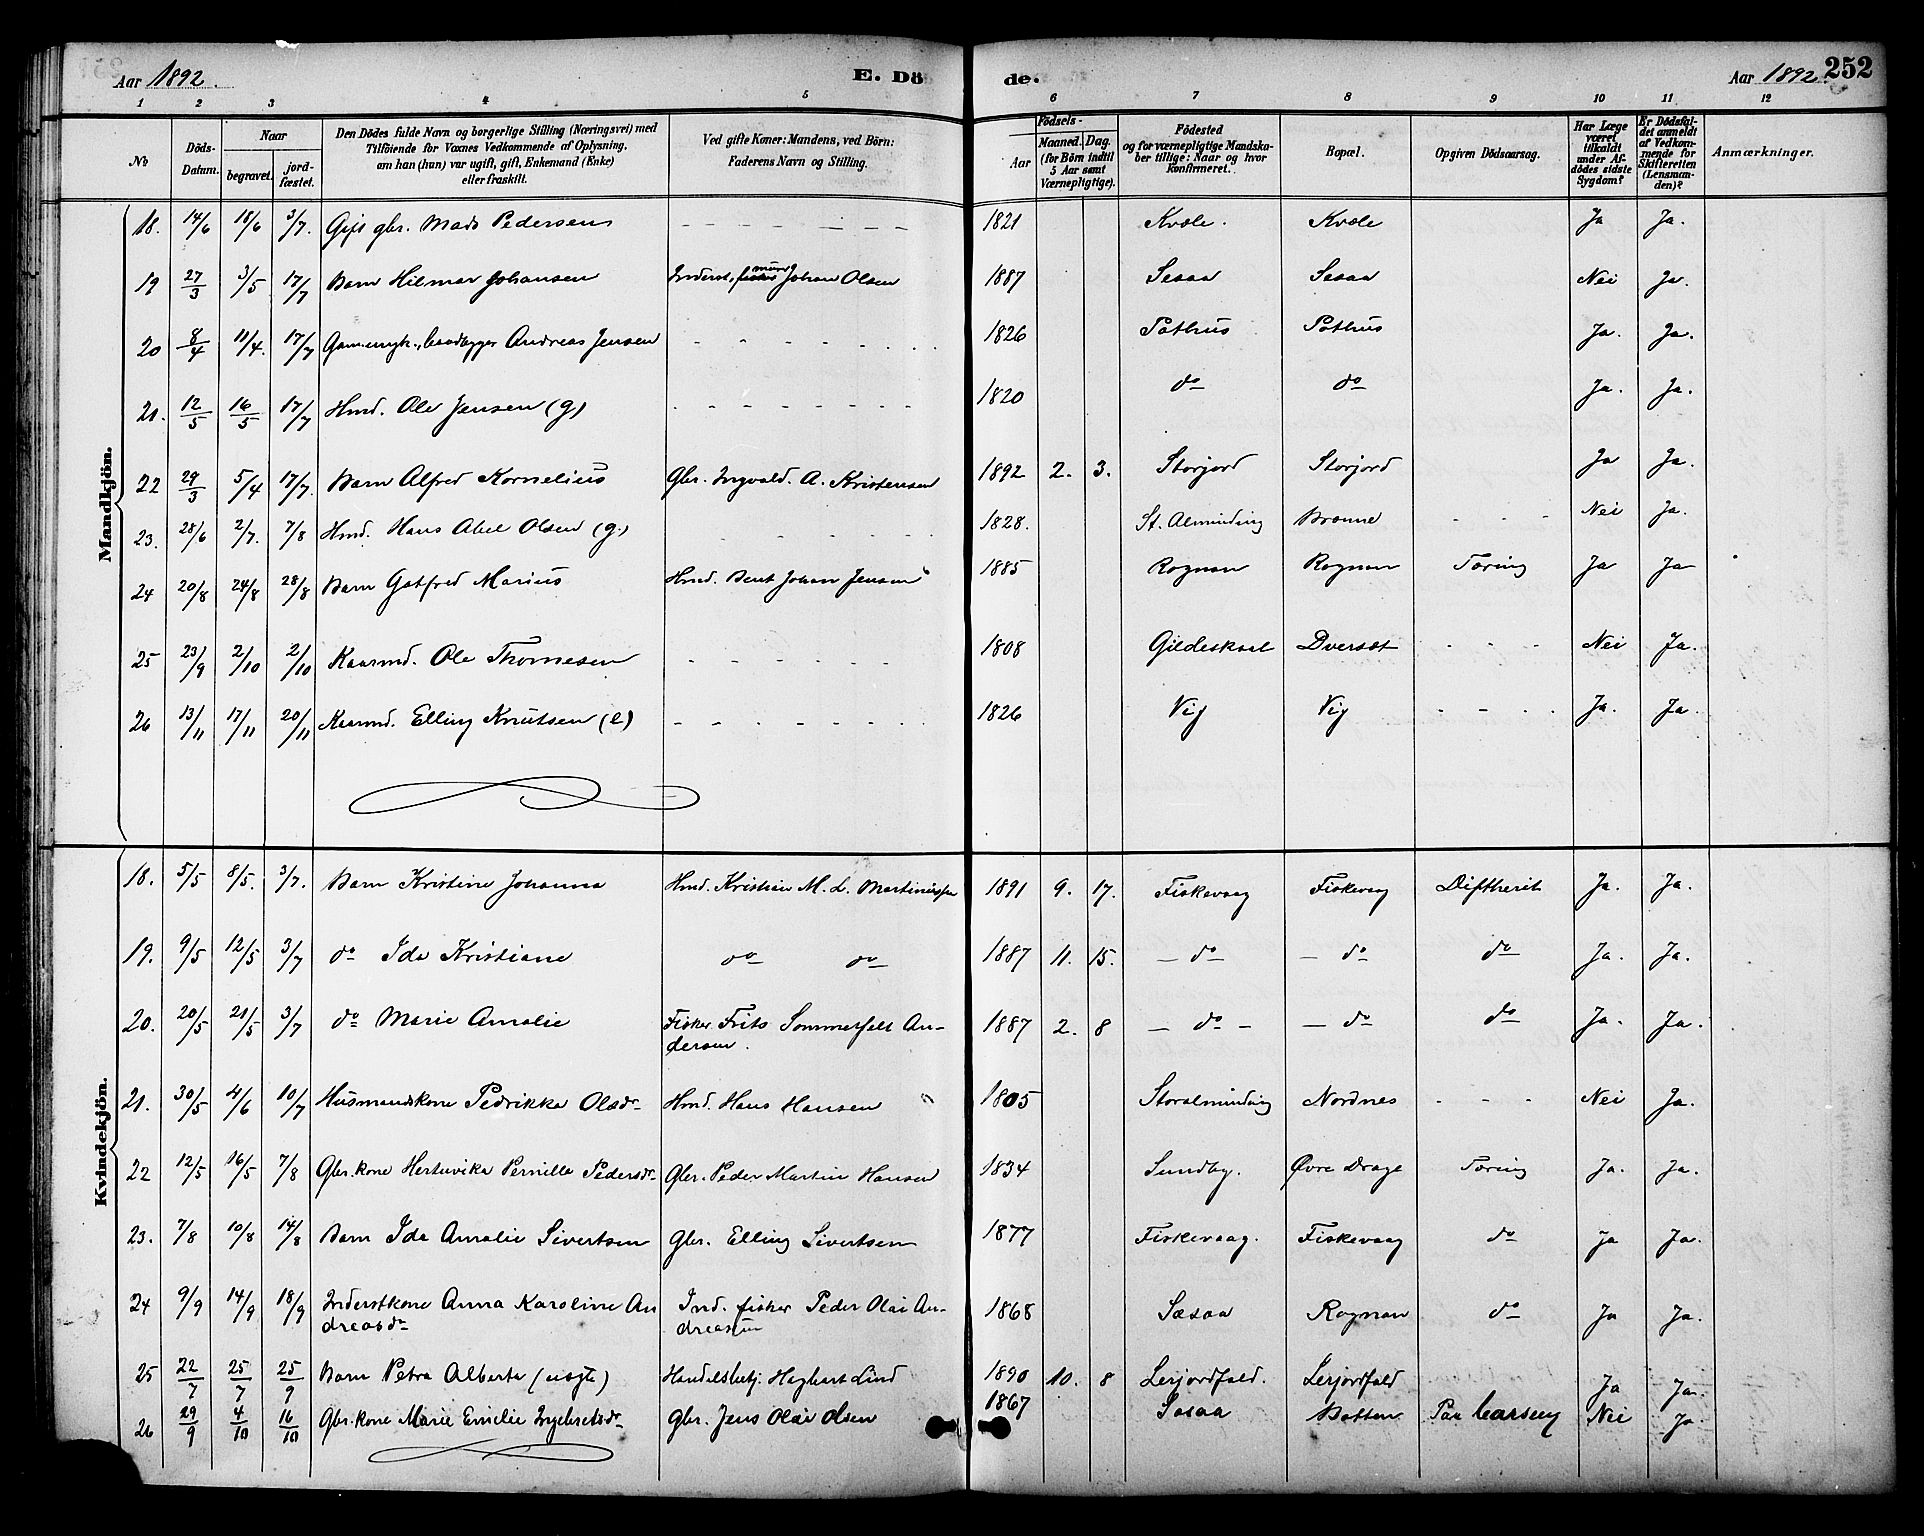 Aar 1892. E. Döde. Aar 1892 252
1 2 3 4 5 6 7 8 9 10 11 12
No
Döds-Datum.
Naar
begravet.
jordfæstet.
Den Dödes fulde Navn og borgerlige Stilling (Næringsvei) med
Tilföiende for Voxnes Vedkommende af Oplysning,
om han (hun) var ugift, gift, Enkemand (Enke)
eller fraskilt.
Ved gifte Koner: Mandens, ved Börn:
Faderens Navn og Stilling.
Födsels-
Aar
Maaned. Dag.
(for Börn indtil
5 Aar samt
Værnepligtige).
Födested
og for værnepligtige Mandskaber tillige: Naar og hvor
konfirmeret.
Bopæl.
Opgiven Dödsaarsag.
Har Læge
været
tilkaldt
under Afdödes sidste
Sygdom?
Er Dödsfaldet anmeldt
af Vedkommende for
Skifteretten
(Lensmanden)?
Anmærkninger.
Mandkjön.
18. 14/6 18/6 3/7. Gift gbr. Mads Pedersen - - - - - - 1821 Kvæle. Kvæle Ja Ja.
19 27/3 3/5 17/7 Barn Hilmar Johansen Inderst, murer Johan Olsen 1887 Sesaa Sesaa Nei Ja.
20 8/4 11/4. 17/7 Andreas Jensen - - - - - - - 1826 Pothus Pothus Ja. Ja.
21. 12/5 16/5 17/7 Hmd. Ole Jensen (g) - - - - - - - 1820 do do Ja. Ja.
22 29/3 5/4 17/7. Barn Alfred Kornelius Gbr. Ingvald. A. Kristensen 1892 2. 3. Storjord Storjord Ja Ja.
23. 28/6 2/7. 7/8 Hmd. Hans Abel Olsen (g.) - - - - - 1828. St. Alminding Brænne - - - Nei Ja.
24 20/8 24/8 28/8 Barn Gotfred Marius Hmd. Bent Johan Jensen 1885 Rognan Rognan Tæring Ja Ja
25 23/9 2/10 2/10 Kaarmd. Ole Thomesen - - - - - - 1808 Gildeskaal Dverset - - - Nei Ja.
26 13/11 17/11 20/11 Kaarmd. Elling Knutsen (e) - - - - - - - 1826 Vig Vig - - - Ja. Ja.
Kvindekjön.
18. 5/5 8/5. 3/7. Barn Kristine Johanna Hmd. Kristian M. L. Martinussen 1891 9. 17. Fiskevaag Fiskevaag Diftherit Ja. Ja.
19. 9/5 12/5 3/7 do Ida Kristiane do do 1887 11. 15. - do - do do Ja. Ja.
20. 20/5 21/5 3/7 do Marie Amalie Fisker. Frits Sommerfelt An-
dersen. 1887 2. 8 - do - - do do Ja. Ja.
21. 30/5 4/6 10/7 Husmandskone Pedrikka Olsdr Hmd. Hans Hansen 1805 Storalminding Nordnes - - - Nei Ja.
22 12/5 16/5 7/8 Gbr.kone Hertuvika Pernille Pedersdr Gbr. Peder Martin Hansen 1834 Sundby. Øvre Drage Tæring Ja. Ja.
23. 7/8 10/8 14/8 Barn Ida Amalie Sivertsen Gbr. Elling Sivertsen 1877 Fiskevaag. Fiskevaag do Ja Ja.
24 9/9 14/9 18/9 Inderstkone Anna Karoline An Ind. fisker Peder Olai An-
dreasdr dreassen 1868 Sæsaa Rognan do Ja Ja.
25 22/7 25/7 25/9 Barn Petra Alberta (uægte) Handelsbetj. Hagbart Lind 1890 10. 8 Lerjordfald. Lerjordfald Ja Ja.
26 29/9 4/10 16/10 Gbr.kone Marie Emelie Ingebretsdr Gbr. Jens Olai Olsen 1867 Sæsaa Botten Paa Nei Ja.